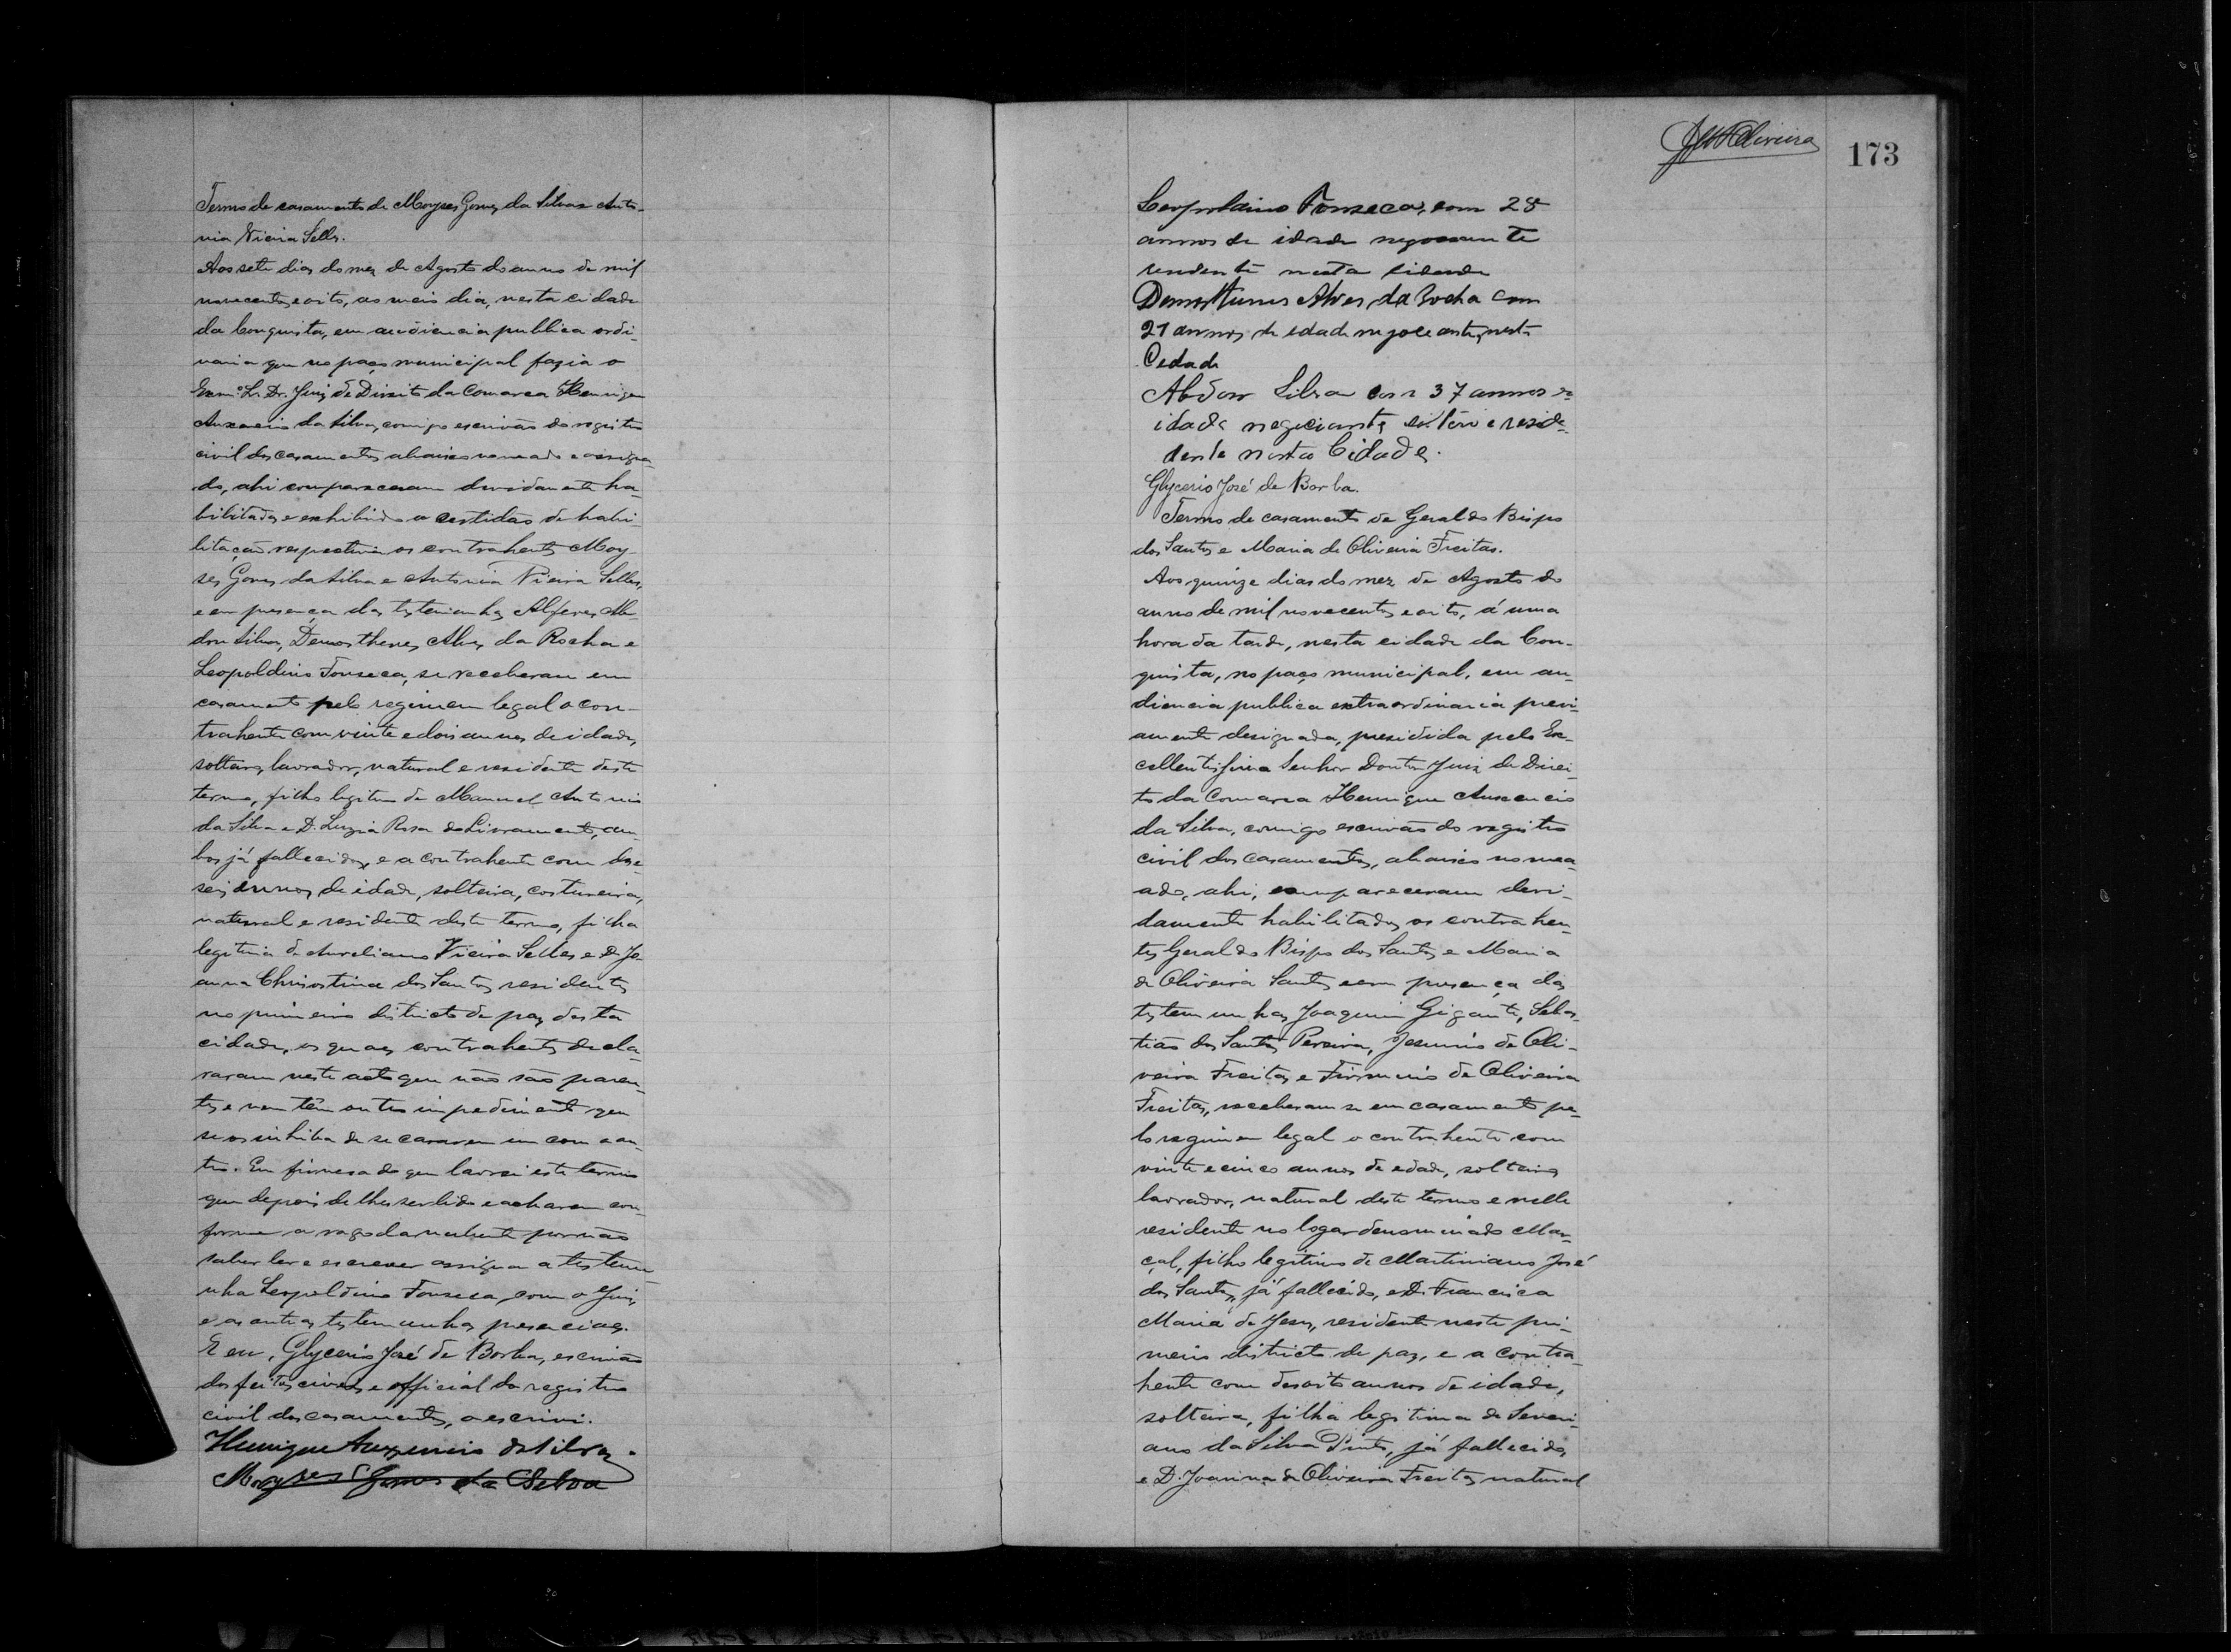 Termo de casamento de Moyses Gomes da Silva e Anto-
nia Vieira Selles.
Aos sete dias do mez de Agosto do anno de mil
novecentos e oito, ao meio dia, nesta cidade
da Conquista, em audiencia publica ordi-
naria que no paço municipal fazia o
Exmo. Sr. Dr. Juiz de Direito da Comarca Henrique
Auxencio da Silva, comigo escrivão do registro
civil dos casamentos abaixo nomeado e assigna-
do, ahi compareceram devidamente ha-
bilitados e exhibindo a certidão de habi
litação respectiva os contrahentes Moy-
ses Gomes da Silva e Antonia Vieira Selles,
e em presença das testemunhas Alferes Ab-
don Silva, Demosthenes Alves da Rocha e
Leopoldino Fonseca, se receberam em
casamento pelo regimen legal o con-
trahente com vinte e dois annos de idade,
solteiro, lavrador, natural e residente deste
termo, filho legitimo de Manuel Antonio
da Silva e D. Luzia Rosa do Livramento, am-
bos já fallecidos, e a contrahente com deze-
seis annos de idade, solteira, costureira,
natural e residente deste termo, filha
legitima de Aureliano Vieira Selles e D. Jo-
anna Christina dos Santos residentes
no primeiro districto de paz desta
cidade, os quaes contrahentes decla-
raram neste acto que não são paren-
tes e nem têm outro impedimento que
se os inhiba de se casarem um com o ou-
tro. Em firmesa do que lavrei este termo
que depois de lhes ser lido e acharem con-
forme a rogo da nubente por não
saber ler e escrever assigna a testemu-
nha Leopoldino Fonseca, com o Juiz,
e as outras testemunhas presenciaes.
E eu, Glycerio José de Borba, escrivão
dos feitos civeis e official do registro
civil dos casamentos, o escrevi.
Henrique Auxencio da Silva.
Moyses Gomes da Selva
173
Leopoldino Fonseca, com 28
annos de idade negociante
residente nesta cidade
Demosthenes Alves da Rocha com
21 annos de edade negociante, nesta
Cedade
Abdon Silva com 37 annos de
idade negociante, solteiro e reside-
dente nesta Cidade.
Glycerio José de Borba.
Termo de casamento de Geraldo Bispo
dos Santos e Maria de Oliveira Freitas.
Aos quinze dias do mez de Agosto do
anno de mil novecentos e oito, á uma
hora da tarde, nesta cidade da Con-
quista, no paço municipal, em au-
diencia publica extraordinaria previ-
amente designada, presidida pelo Ex-
cellentissimo Senhor Doutor Juiz de Direi-
to da Comarca Henrique Auxencio
da Silva, comigo escrivão do registro
civil dos casamentos, abaixo nomea-
ado, ahi, compareceram devi-
damente habilitados os contrahen-
tes Geraldo Bispo dos Santos e Maria
de Oliveira Santos e em presença das
testemunhas Joaquim Gigante, Sebas-
tião dos Santos Pereira, Jesuino de Oli-
veira Freitas e Firmino de Oliveira
Freitas, receberam se em casamento pe-
lo regimen legal o contrahente com
vinte e cinco annos de edade, solteiro
lavrador, natural deste termo e nelle
residente no logar denominado Mar-
çal, filho legitimo de Martiniano José
dos Santos, já fallecido, e D. Francisca
Maria de Jesus, residente neste pri-
meiro districto de paz, e a contra-
hente com desoito annos de idade,
solteira, filha legitima de Severi-
ano da Silva Pinto, já fallecido,
e D. Joanna de Oliveira Freitas, natural